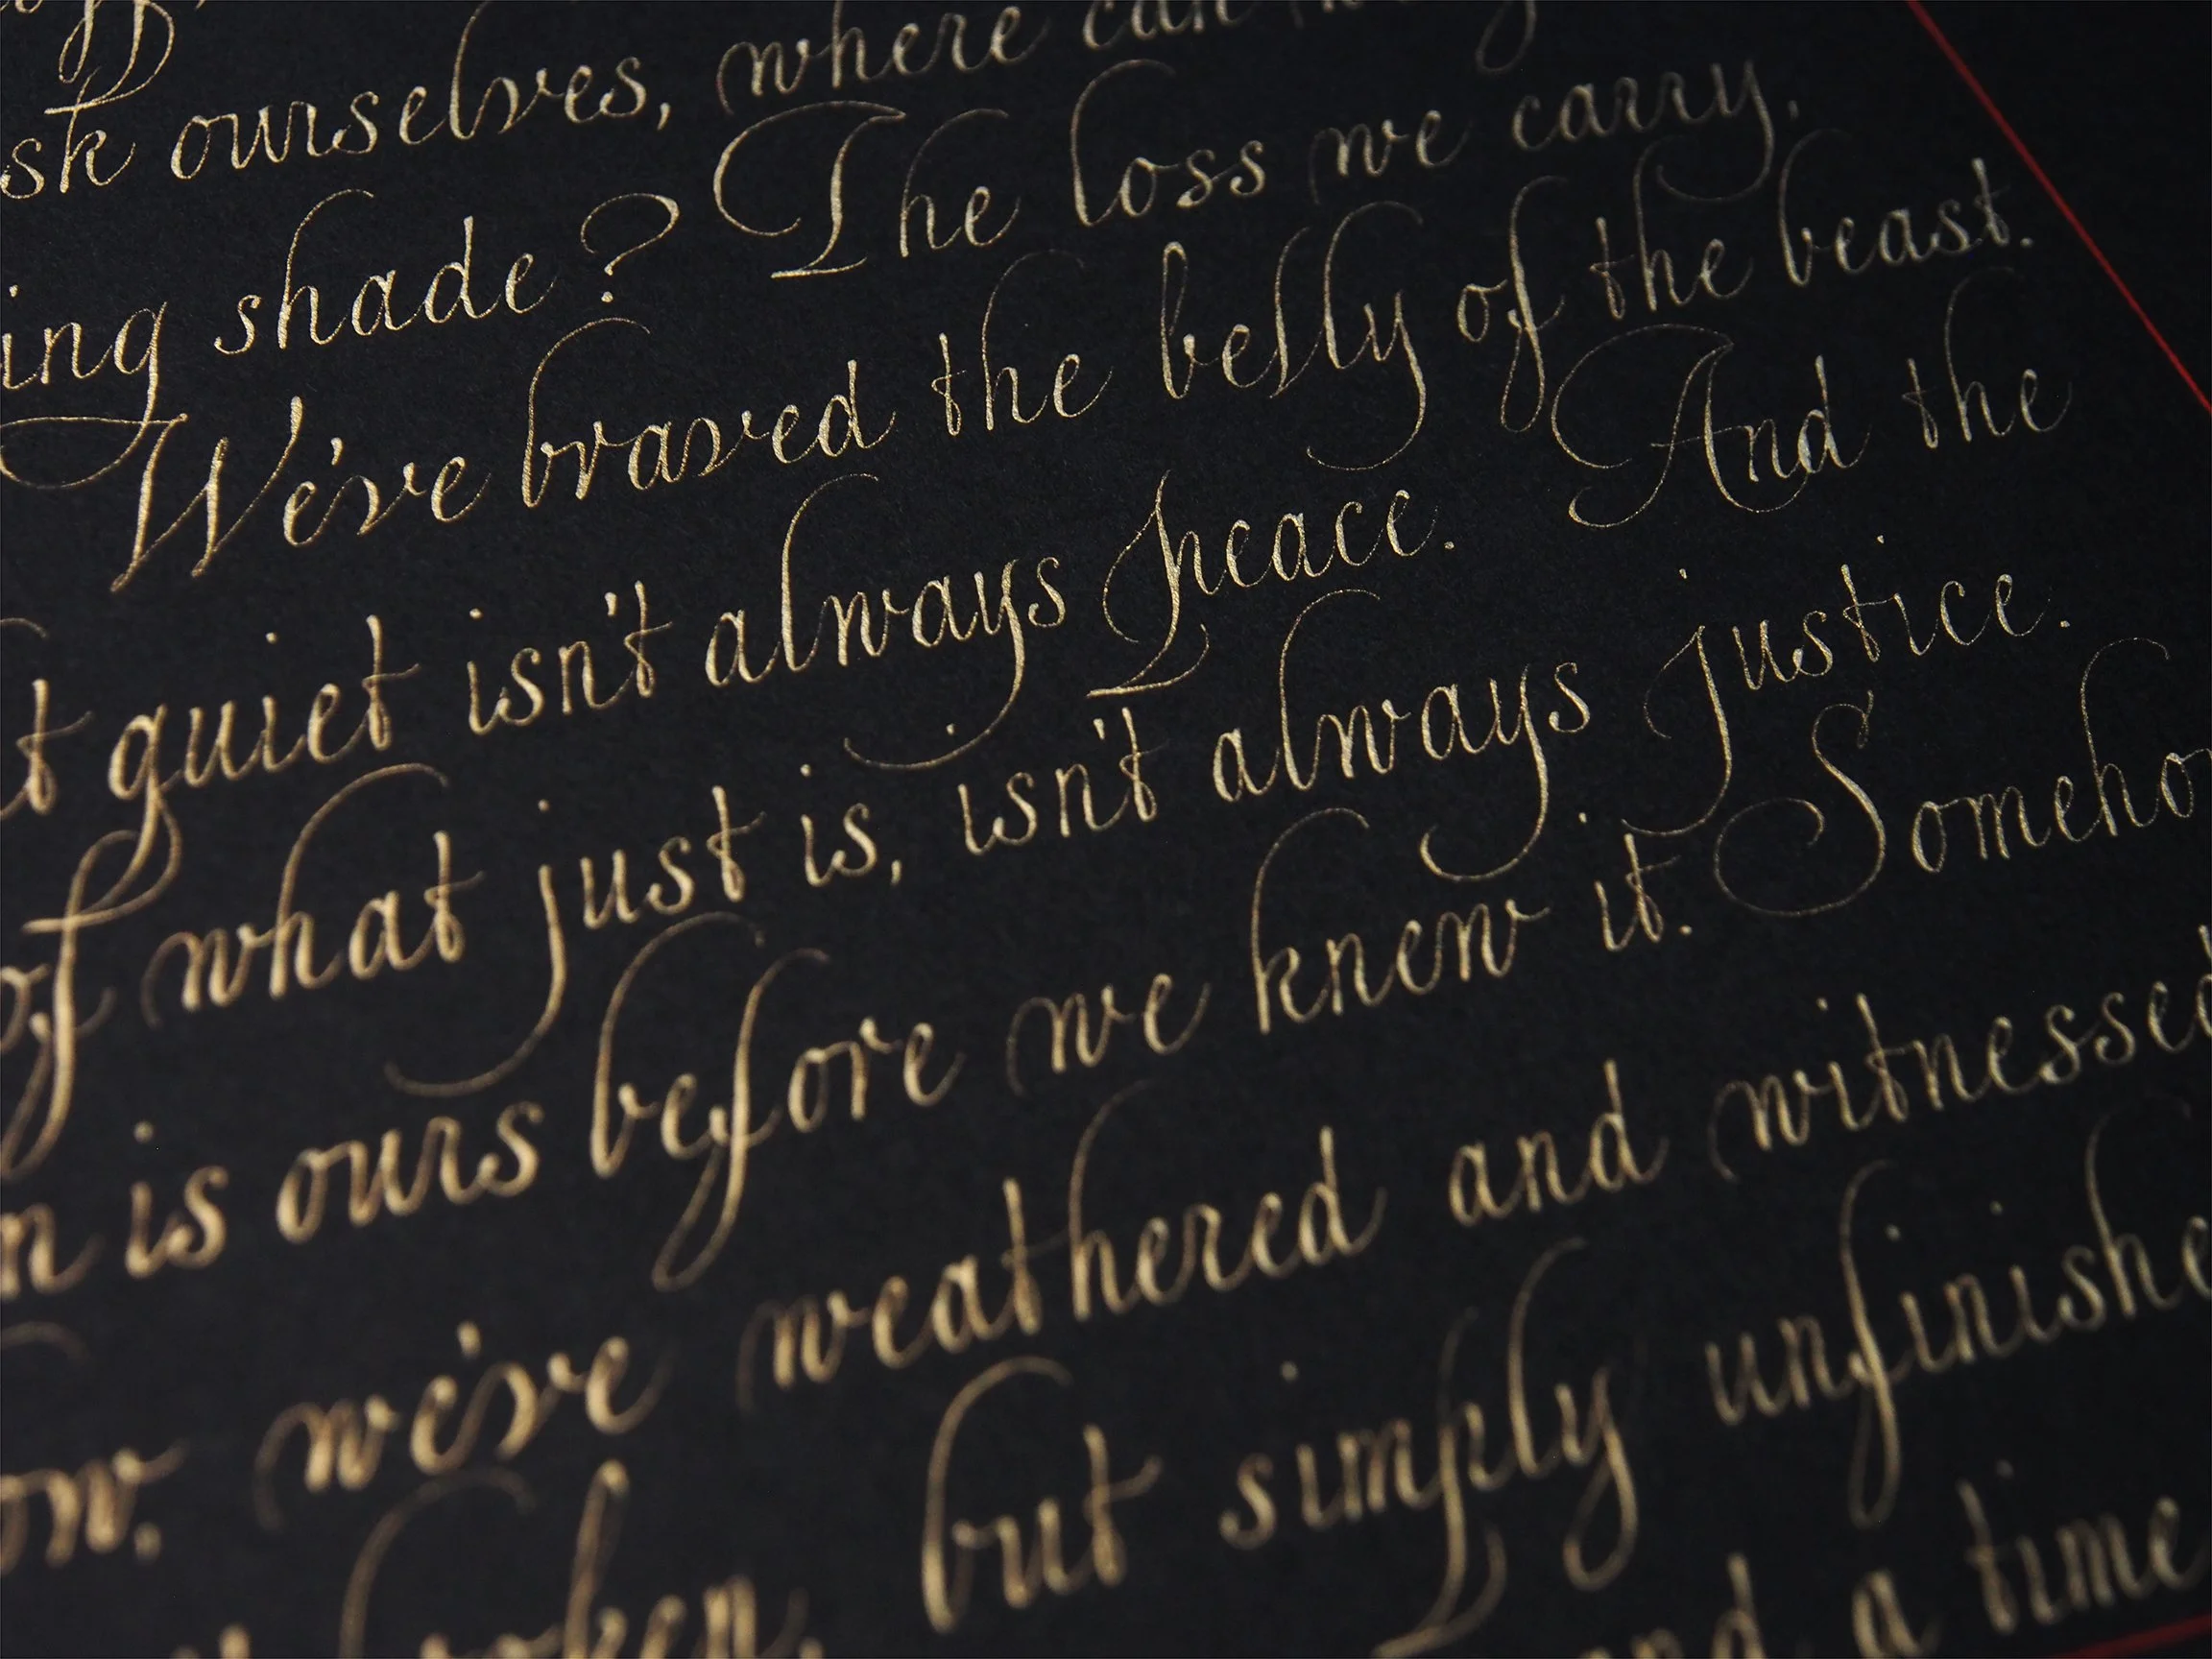 ourselves, where can
shade? The loss we carry,
We've braved the belly of the beast.
quiet isn't always peace. And the
of what just is, isn't always justice.
is ours before we knew it. Somehow
we've weathered and witnessed
but simply unfinished
a time